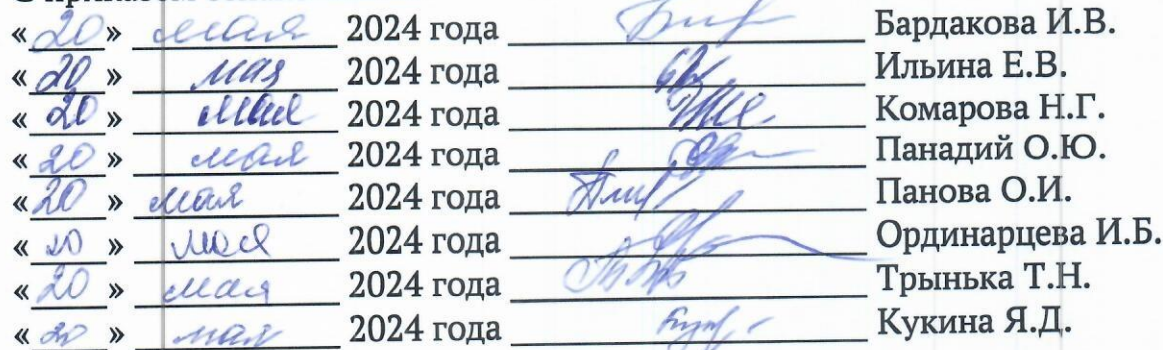 «20» мая 2024 года Бардакова И.В.
«20» мая 2024 года Ильина Е.В.
«20» мая 2024 года Комарова Н.Г.
«20» мая 2024 года Панадий О.Ю.
«20» мая 2024 года Панова О.И.
«20» мая 2024 года Ординарцева И.Б.
«20» мая 2024 года Трынька Т.Н.
«20» мая 2024 года Кукина Я.Д.